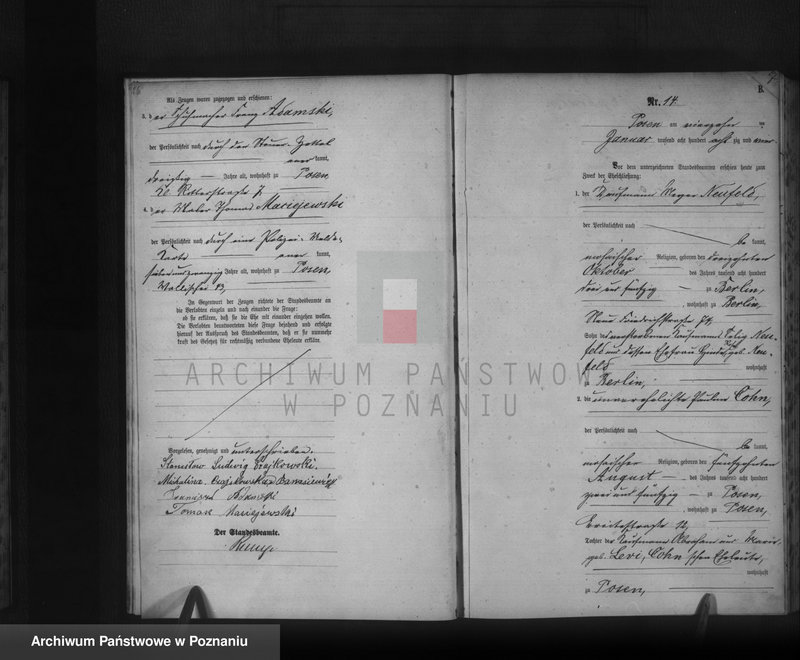 Als Zeugen waren zugezogen und erschienen:
3. der Schuhmacher Franz Adamski,
der Persönlichkeit nach durch den Steuer-Zettel
kannt,
dreißig — Jahre alt, wohnhaft zu Posen
Ritterstraße
4. der Maler Thomas Maciejewski
der Persönlichkeit nach durch eine Polizei-Melde-
karte kannt,
Jahre alt, wohnhaft zu Posen,
Wallischei
In Gegenwart der Zeugen richtete der Standesbeamte an
die Verlobten einzeln und nach einander die Frage:
ob sie erklären, daß sie die Ehe mit einander eingehen wollen.
Die Verlobten beantworteten diese Frage bejahend und erfolgte
hierauf der Ausspruch des Standesbeamten, daß er sie nunmehr
kraft des Gesetzes für rechtmäßig verbundene Eheleute erkläre.
Vorgelesen, genehmigt und unterschrieben.
Stanisław Ludwig
Michalina Banasiewicz
Adamski
Tomasz Maciejewski
Der Standesbeamte.
B.
Nr. 14.
Posen am vierzehn ten
Januar tausend acht hundert acht zig und
Vor dem unterzeichneten Standesbeamten erschien heute zum
Zweck der Eheschließung:
1. der Kaufmann Meyer Neufeld,
der Persönlichkeit nach
be kannt,
mosaischer Religion, geboren den dreizehnten
Oktober des Jahres tausend acht hundert
drei und fünfzig — zu Berlin,
, wohnhaft zu Berlin,
Neue Friedrichstraße
Sohn des verstorbenen Kaufmanns Selig Neu-
feld und dessen Ehefrau geb. Neu-
feld wohnhaft
zu Berlin,
2. die unverehelichte Pauline Cohn,
der Persönlichkeit nach
be kannt,
mosaischer Religion, geboren den fünfzehnten
August — des Jahres tausend acht hundert
zwei und fünfzig — zu Posen,
, wohnhaft zu Posen,
Breitestraße 12,
Tochter der Kaufmann Abraham und Marie
geb. Levi, Cohn'schen Eheleute,
wohnhaft
zu Posen,
ARCHIWUM PAŃSTWOWE
W POZNANIU
Archiwum Państwowe w Poznaniu